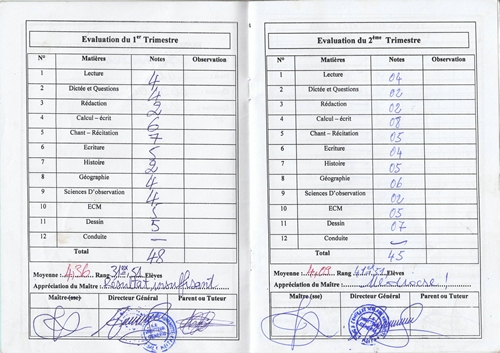 Evaluation du 1er Trimestre
N° Matières Notes Observation
1 Lecture 4
2 Dictée et Questions 4
3 Rédaction 2
4 Calcul – écrit 6
5 Chant – Récitation 7
6 Ecriture 5
7 Histoire 2
8 Géographie 4
9 Sciences D'observation 4
10 ECM 5
11 Dessin 5
12 Conduite —
Total 48
Moyenne : 4,36 Rang 31ex 51 Elèves
Appréciation du Maître : Résultat insuffisant
Maître(sse) Directeur Général Parent ou Tuteur
Evaluation du 2ème Trimestre
N° Matières Notes Observation
1 Lecture 04
2 Dictée et Questions 02
3 Rédaction 02
4 Calcul – écrit
5 Chant – Récitation 05
6 Ecriture 04
7 Histoire 05
8 Géographie 06
9 Sciences D'observation 02
10 ECM 05
11 Dessin 07
12 Conduite —
Total 45
Moyenne : 4,09 Rang 51 Elèves
Appréciation du Maître : Médiocre !
Maître(sse) Directeur Général Parent ou Tuteur